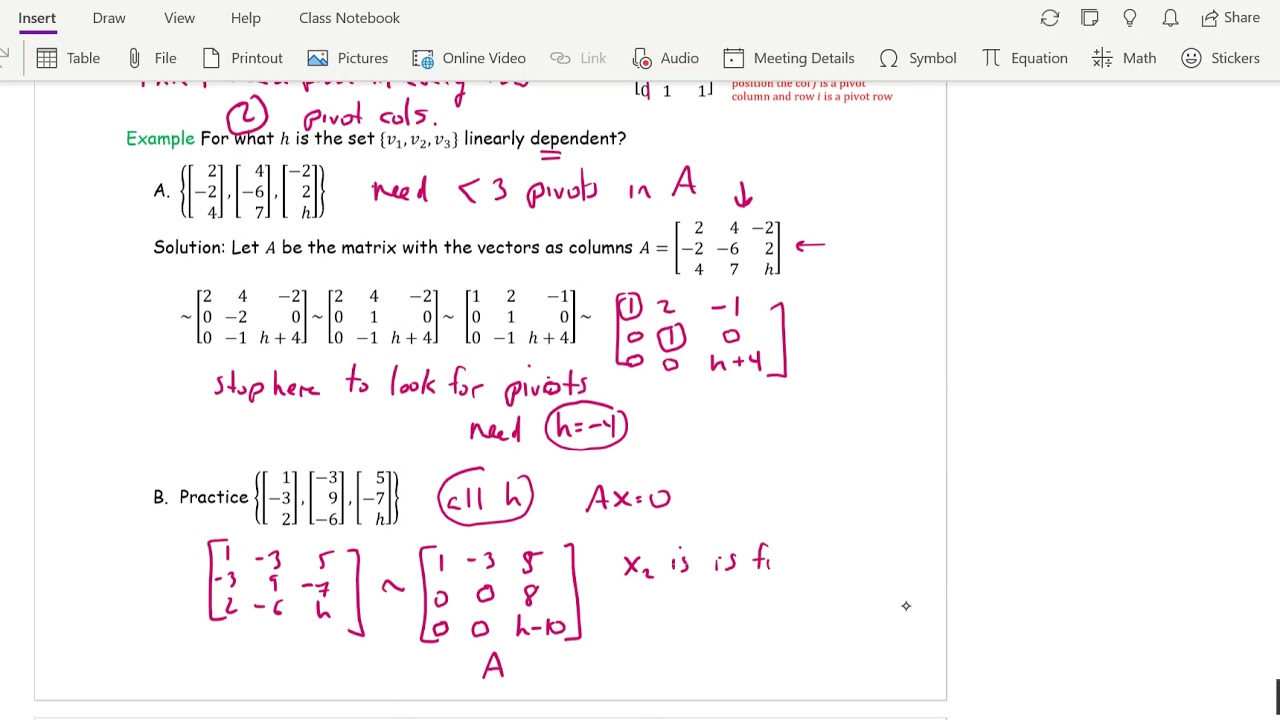 Insert Draw View Help Class Notebook Share
Table File Printout Pictures Online Video Link Audio Meeting Details Symbol Equation Math Stickers
[0 1 1] position the col j is a pivot
column and row i is a pivot row
② pivot cols.
Example For what h is the set {v₁, v₂, v₃} linearly dependent?
A. {[2 -2 4], [4 -6 7], [-2 2 h]} need < 3 pivots in A ↓
Solution: Let A be the matrix with the vectors as columns A = [2 4 -2; -2 -6 2; 4 7 h] ←
~ [2 4 -2; 0 -2 0; 0 -1 h + 4] ~ [2 4 -2; 0 1 0; 0 -1 h + 4] ~ [1 2 -1; 0 1 0; 0 -1 h + 4] ~ [1 2 -1; 0 1 0; 0 0 h+4]
stop here to look for pivots
need h=-4
B. Practice {[1 -3 2], [-3 9 -6], [5 -7 h]} all h Ax=0
[1 -3 5; -3 9 -7; 2 -6 h] ~ [1 -3 5; 0 0 8; 0 0 h-10] x₂ is is f
A